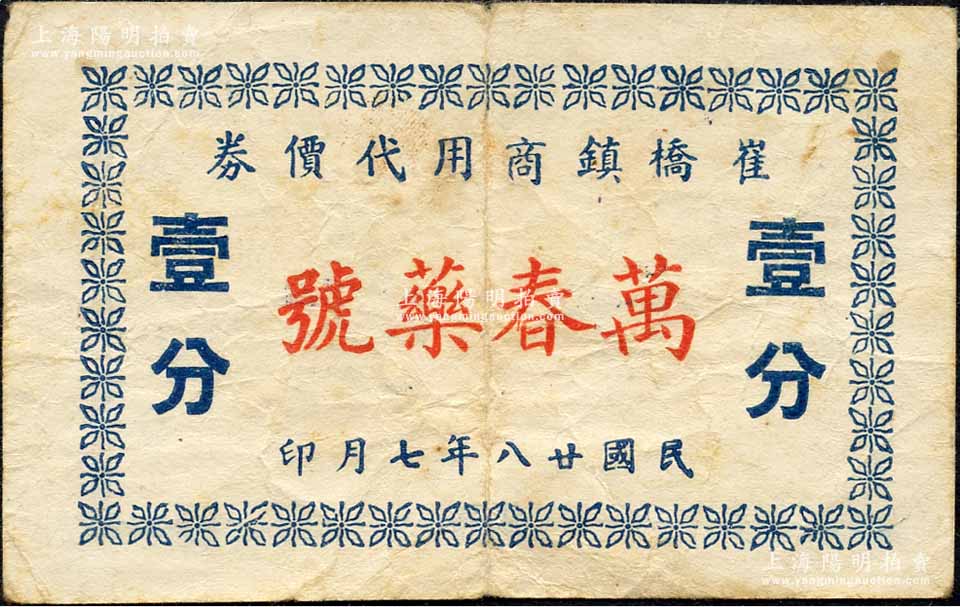 上海陽明拍賣
www.yangmingauction.com
崔橋鎮商用代價券
壹分
壹分
萬春藥號
上海陽明拍賣
www.yangmingauction.com
民國廿八年七月印
上海陽明拍賣
www.yangmingauction.com